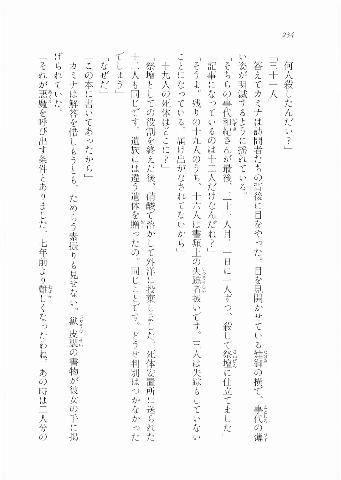 234
何人殺したんだい？」
「三十一人」
答えてカミナは訪問者たちの背後に目をやった。目を見開かせている
の横で、事代の薄
い姿が明滅するように揺れている。
「そちらの事代和紀さんが最後、三十一人目。一日に一人ずつ、殺して祭壇に仕立てました」
「記事になっているのは十二人だけなんだね？」
「そうよ。残りの十九人のうち、十六人は書類上の失踪者扱いです。三人は失踪もしていない
ことになっている。届け出がなされていないから」
「十九人の死体はどこ？」
「祭壇としての役割を終えた後、硝酸で溶かして外洋に投棄しました。死体安置所に送られた
十二人も同じです。遺族には違う遺体を贈ったの。同じことです。どうせ判別はつかなかった
でしょう」
「なぜだ」
「この本に書いてあったから」
カミナは解答を惜しもうとも、ためらう素振りも見せない。獣皮装の書物が彼女の手に掲
げられていた。
「それが悪魔を呼び出す条件とありました。七年前より難しくなったわね。あの時は二人分の